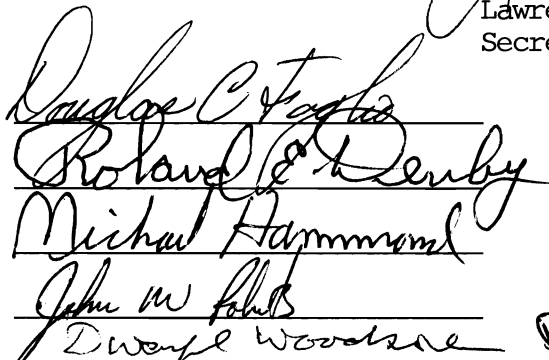 Lawre
Secre
Douglas C Foglio
Roland E Denby
Michael Hammond
John M Roberts
Dwayne Woodsone